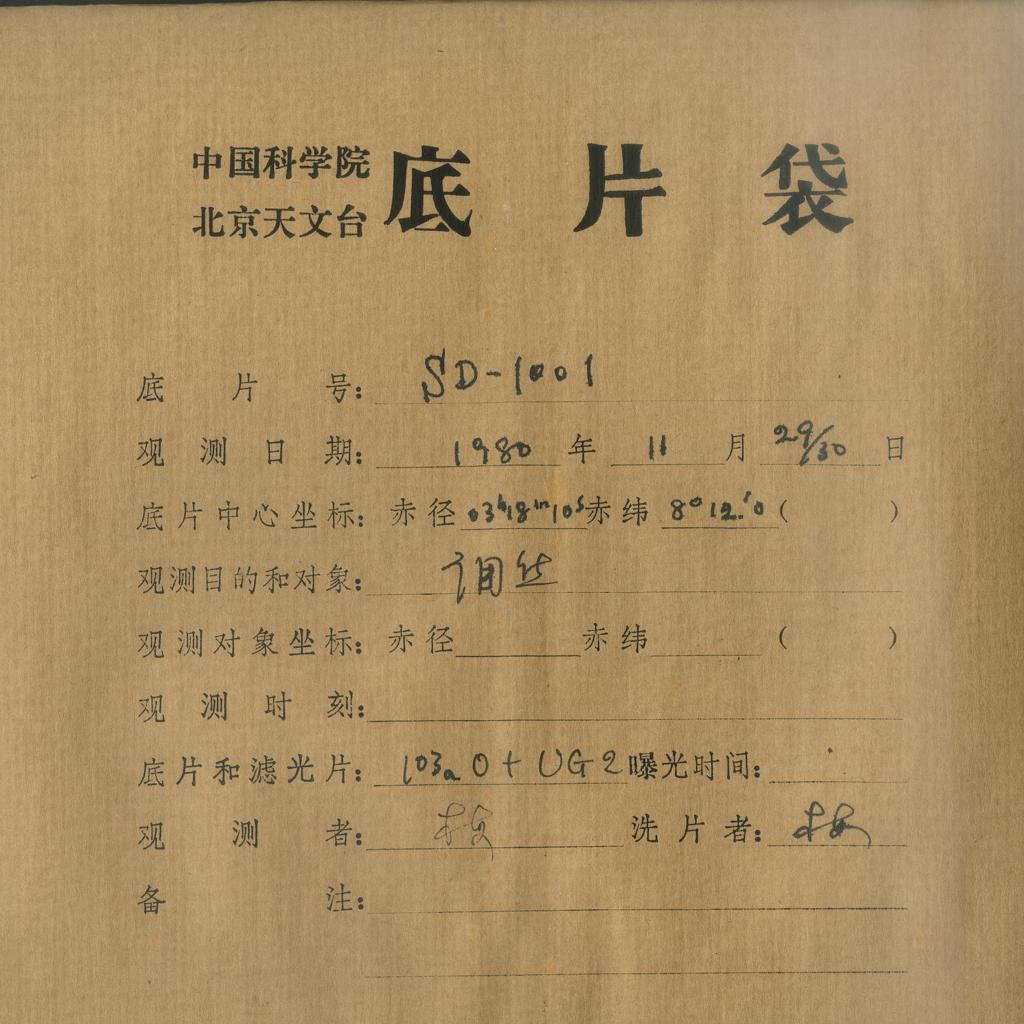 中国科学院
北京天文台
底片袋
底片号: SD-1001
观测日期: 1980 年 11 月 29/30 日
底片中心坐标: 赤径 03h18m10s 赤纬 8°12.'0 ( )
观测目的和对象:
观测对象坐标: 赤径 赤纬 ( )
观测时刻:
底片和滤光片: 103aO+UG2 曝光时间:
观测者: 洗片者:
备注: